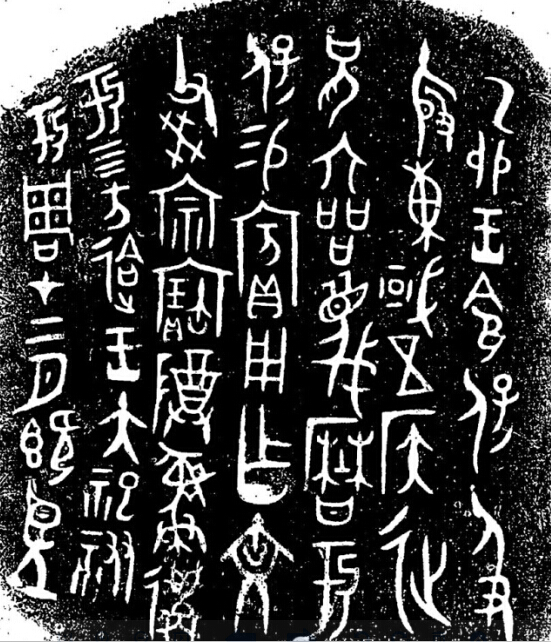 乙卯王令保及
殷東或五侯征
兄六品蔑曆于
保易賓用乍文
父癸宗寶尊彝遘
于四方迨王大祀祐
于周才二月既望